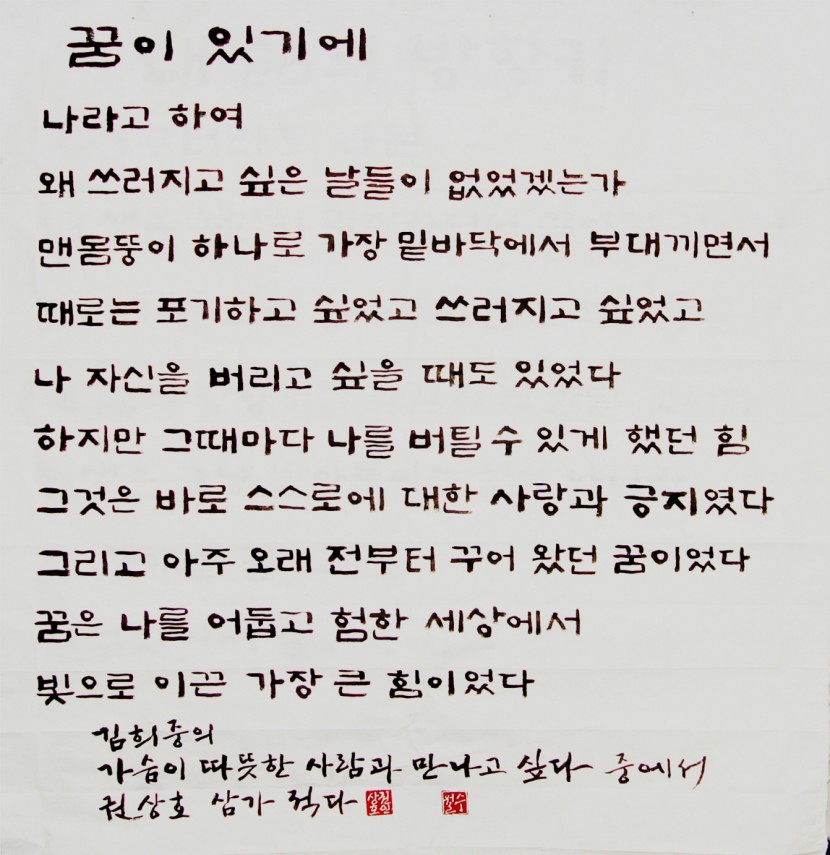 꿈이 있기에
나라고 하여
왜 쓰러지고 싶은 날들이 없었겠는가
맨몸뚱이 하나로 가장 밑바닥에서 부대끼면서
때로는 포기하고 싶었고 쓰러지고 싶었고
나 자신을 버리고 싶을 때도 있었다
하지만 그때마다 나를 버틸 수 있게 했던 힘
그것은 바로 스스로에 대한 사랑과 긍지였다
그리고 아주 오래 전부터 꾸어 왔던 꿈이었다
꿈은 나를 어둡고 험한 세상에서
빛으로 이끈 가장 큰 힘이었다
김희중의
가슴이 따뜻한 사람과 만나고 싶다 중에서
권상호 삼가 적다